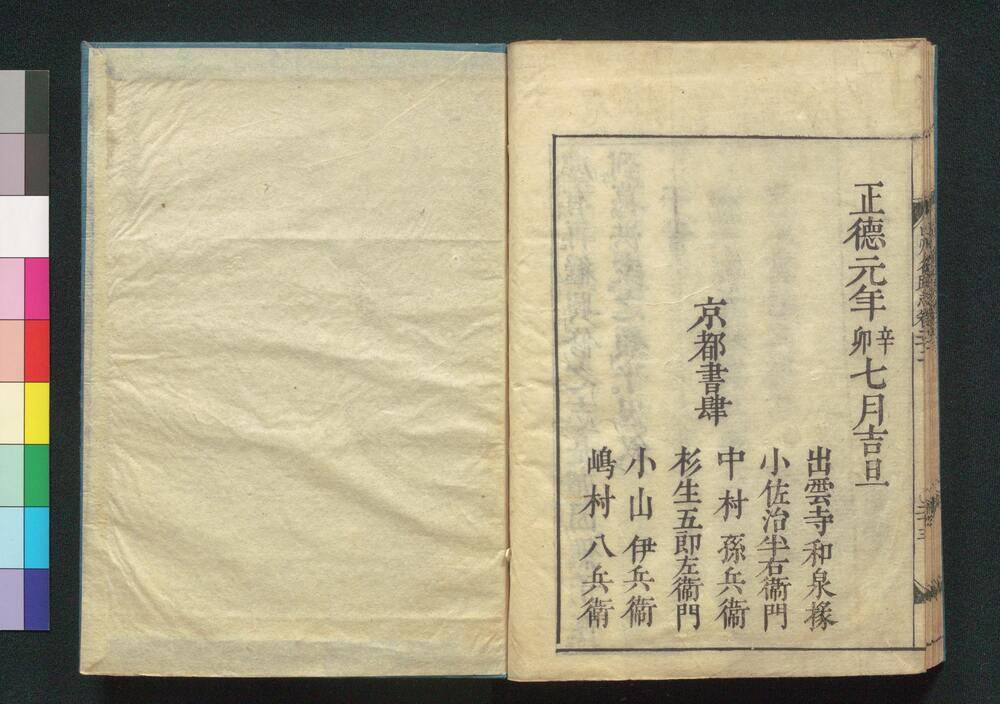 正德元年辛卯七月吉旦
京都書肆
出雲寺和泉掾
小佐治半右衛門
中村孫兵衛
杉生五郎左衛門
小山伊兵衛
嶋村八兵衛